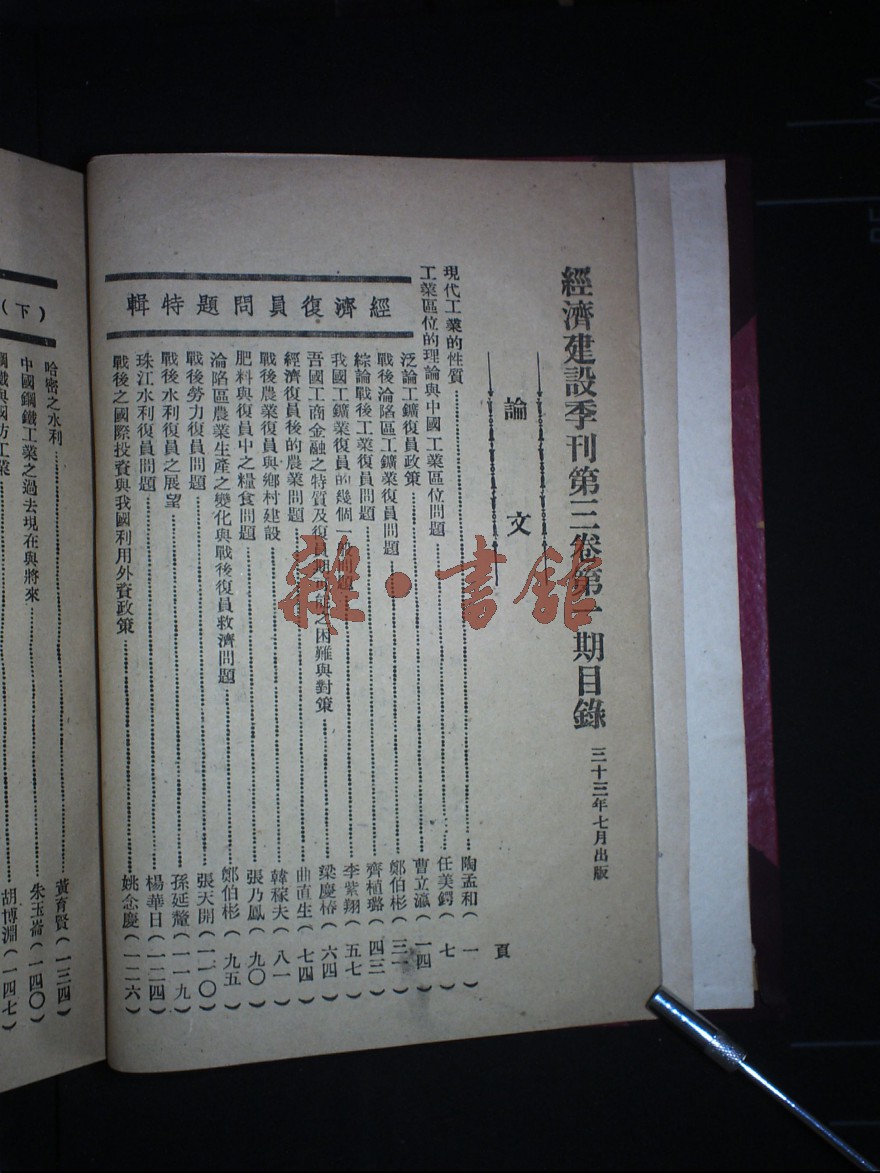 經濟建設季刊第三卷第一期目錄 三十三年七月出版
論文 頁
現代工業的性質 陶孟和(一)
工業區位的理論與中國工業區位問題 任美鍔(七)
經濟復員問題特輯
泛論工鑛復員政策 曹立瀛(一四)
戰後淪陷區工鑛業復員問題 鄭伯彬(三一)
綜論戰後工業復員問題 齊植璐(四三)
我國工鑛業復員的幾個一般問題 李紫翔(五七)
吾國工商金融之特質及復員期可能之困難與對策 梁慶椿(六四)
經濟復員後的農業問題 曲直生(七四)
戰後農業復員與鄉村建設 韓稼夫(八一)
肥料與復員中之糧食問題 張乃鳳(九〇)
淪陷區農業生產之變化與戰後復員救濟問題 鄭伯彬(九五)
戰後勞力復員問題 張天開(一一〇)
戰後水利復員之展望 孫延釐(一一九)
珠江水利復員問題 楊華日(一二四)
戰後之國際投資與我國利用外資政策 姚念慶(一二六)
(下)
哈密之水利 黃育賢(一三四)
中國鋼鐵工業之過去現在與將來 朱玉崙(一四〇)
鋼鐵與國防工業 胡博淵(一四七)
雜·書館